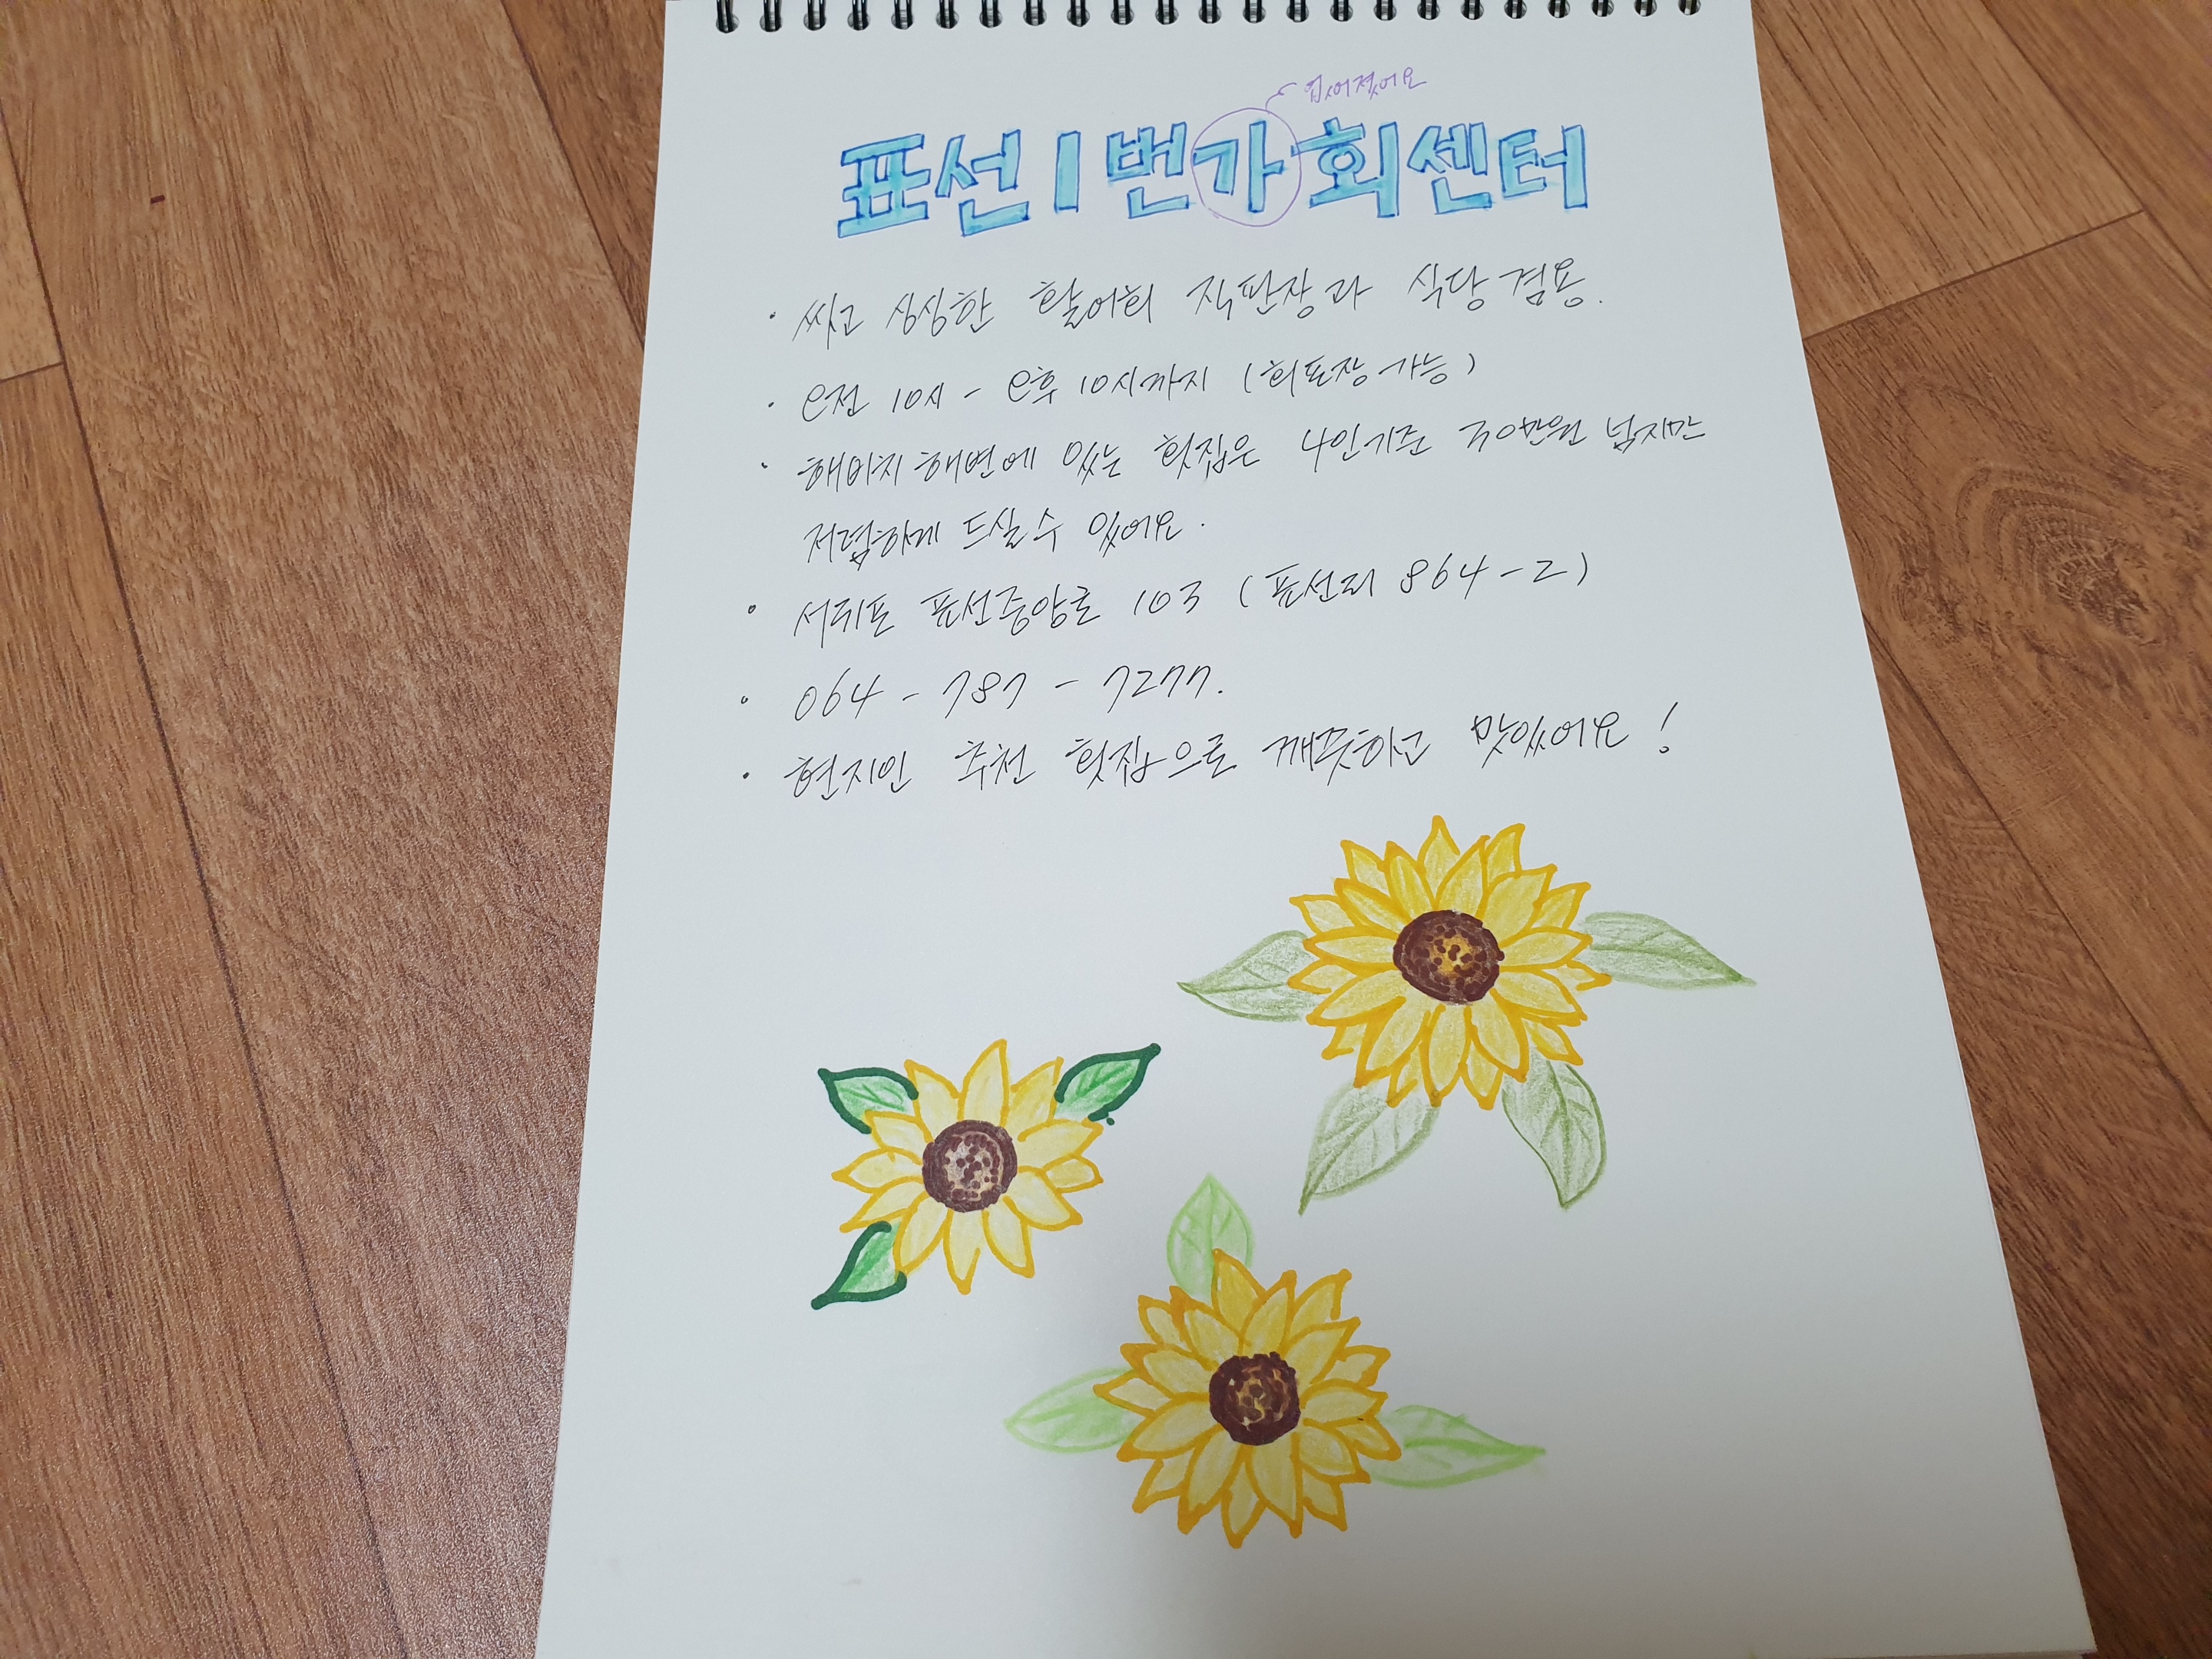 없어졌어요
표선1번가회센터
· 싸고 싱싱한 활어회 직판장과 식당 겸용.
· 오전 10시 - 오후 10시까지 (회포장가능)
· 해비치해변에 있는 횟집은 4인기준 30만원 넘지만
저렴하게 드실수 있어요.
· 서귀포 표선중앙로 103 (표선리 864-2)
· 064 - 787 - 7277.
· 현지인 추천 횟집으로 깨끗하고 맛있어요!